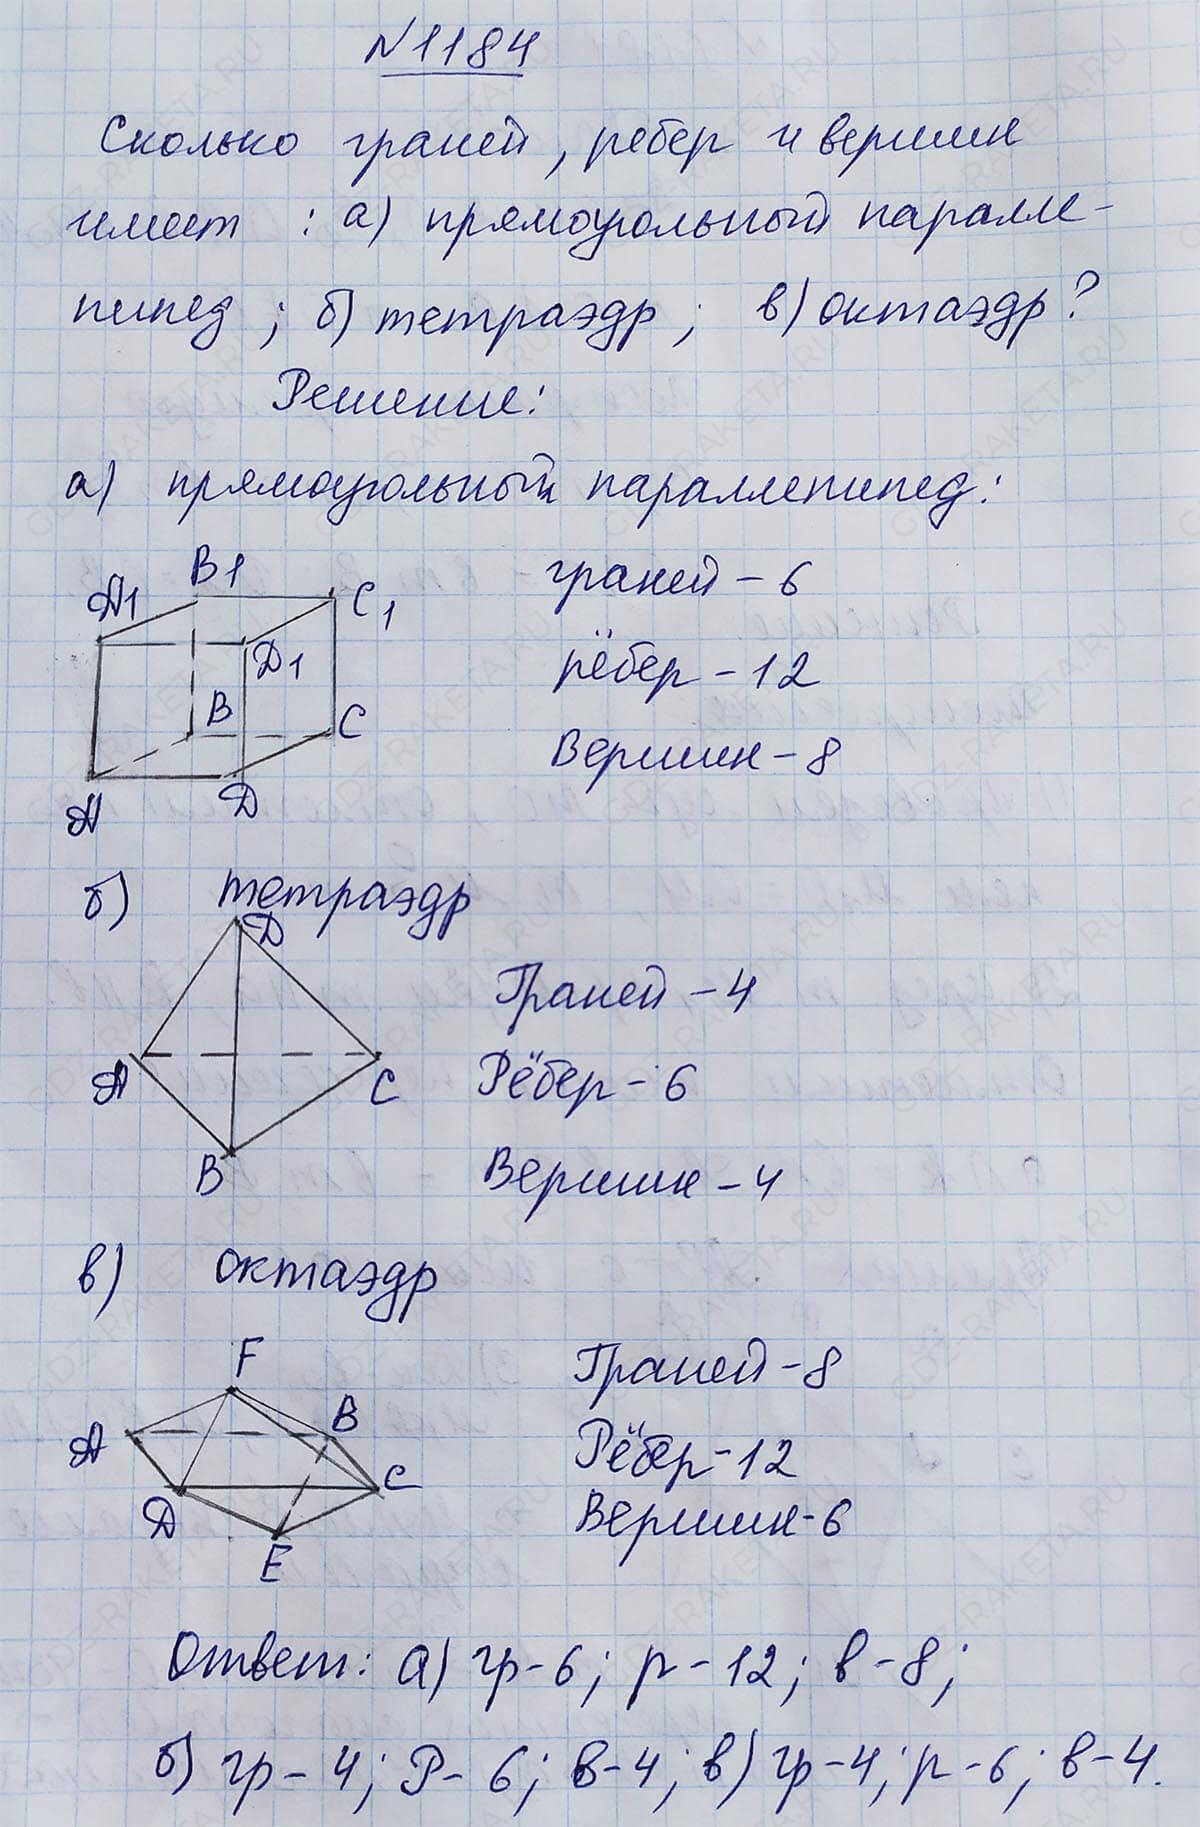 N1184
Сколько граней, рёбер и вершин
имеет : а) прямоугольный паралле-
пипед ; б) тетраэдр ; в) октаэдр?
Решение:
а) прямоугольный параллепипед:
A1 B1 C1 D1 A B C D
граней - 6
рёбер - 12
Вершин - 8
б) тетраэдр
D A C B
Граней - 4
Рёбер - 6
Вершин - 4
в) октаэдр
F A B C D E
Граней - 8
Рёбер - 12
Вершин - 6
Ответ: а) гр - 6; р - 12; в - 8;
б) гр - 4; Р - 6; в - 4; в) гр - 4; р - 6; в - 4.
GDZ-RAKETA.RU